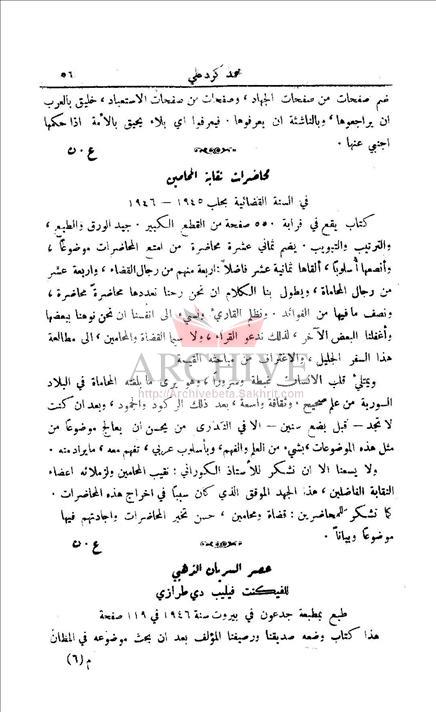 محمد كرد علي ٥٦
ضم صفحات من صفحات الجهاد ، وصفحات من صفحات الاستعباد ، خليق بالعرب
ان يراجعوها ، وبالناشئة ان يعرفوها . فيعرفوا اي بلاء يحيق بالأمة اذا حكمها
اجنبي عنها .
ع . ن
محاضرات نقابة المحامين
في السنة القضائية بحلب ١٩٤٥ – ١٩٤٦
كتاب يقع في قرابة ٥٥٠ صفحة من القطع الكبير . جيد الورق والطبع ،
والترتيب والتبويب . يضم ثماني عشرة محاضرة من امتع المحاضرات موضوعاً ،
وأنصعها أسلوباً ، ألقاها ثمانية عشر فاضلاً : اربعة منهم من رجال القضاء ، واربعة عشر
من رجال المحاماة ، ويطول بنا الكلام ان نحن رحنا نعددها محاضرة محاضرة ،
ونصف ما فيها من الفوائد . ونظلم القارئ ونسيء الى انفسنا ان نحن نوهنا ببعضها
وأغفلنا البعض الآخر ، لذلك ندعو القراء ، ولا سيما القضاة والمحامين ، الى مطالعة
هذا السفر الجليل ، والاغتراف من مباحثه القيمة
ARCHIVE
http://Archivebeta.Sakhrit.com
ويمتلئ قلب الانسان غبطة وسروراً ، وهو يرى ما بلغته المحاماة في البلاد
السورية من علم صحيح ، وثقافة واسعة ، بعد ذلك الركود والجمود ، وبعد ان كنت
لا تجد – قبل بضع سنين – الا في النادر من يحسن ان يعالج موضوعاً من
مثل هذه الموضوعات ، بشيء من العلم والفهم ، وبأسلوب عربي ، تفهم معه ، ما يراد منه .
ولا يسعنا الا ان نشكر للأستاذ الكوراني : نقيب المحامين ولزملائه اعضاء
النقابة الفاضلين ، هذا الجهد الموفق الذي كان سبباً في اخراج هذه المحاضرات .
كما نشكر للمحاضرين : قضاة ومحامين ، حسن تخير المحاضرات واجادتهم فيها
موضوعاً وبياناً .
ع . ن
عصر السريان الذهبي
للفيكنت فيليب دي طرازي
طبع بمطبعة جدعون في بيروت سنة ١٩٤٦ في ١١٩ صفحة
هذا كتاب وضعه صديقنا ورصيفنا المؤلف بعد ان بحث موضوعه في المظان
م (٦)